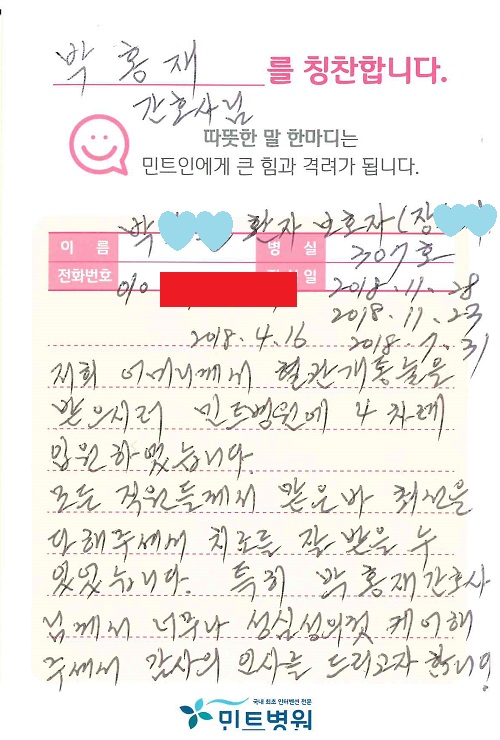 박홍재 를 칭찬합니다.
간호사님
따뜻한 말 한마디는
민트인에게 큰 힘과 격려가 됩니다.
박 환자 보호자(장
이 름 병 실 307호
전화번호 010 일 2018.11.28
2018.11.23
2018.4.16 2018.7.31
저희 어머니께서 혈관개통술을
받으시러 민트병원에 4차례
입원하였습니다.
모든 직원들께서 맡은바 최선을
다해주셔서 치료를 잘 받을 수
있었습니다. 특히 박홍재간호사
님께서 너무나 성심성의껏 케어해
주셔서 감사의 인사를 드리고자 합니다
국내 최초 인터벤션 전문
민트병원